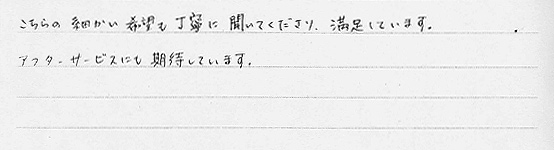 こちらの細かい希望も丁寧に聞いてくださり、満足しています。
アフターサービスにも期待しています。